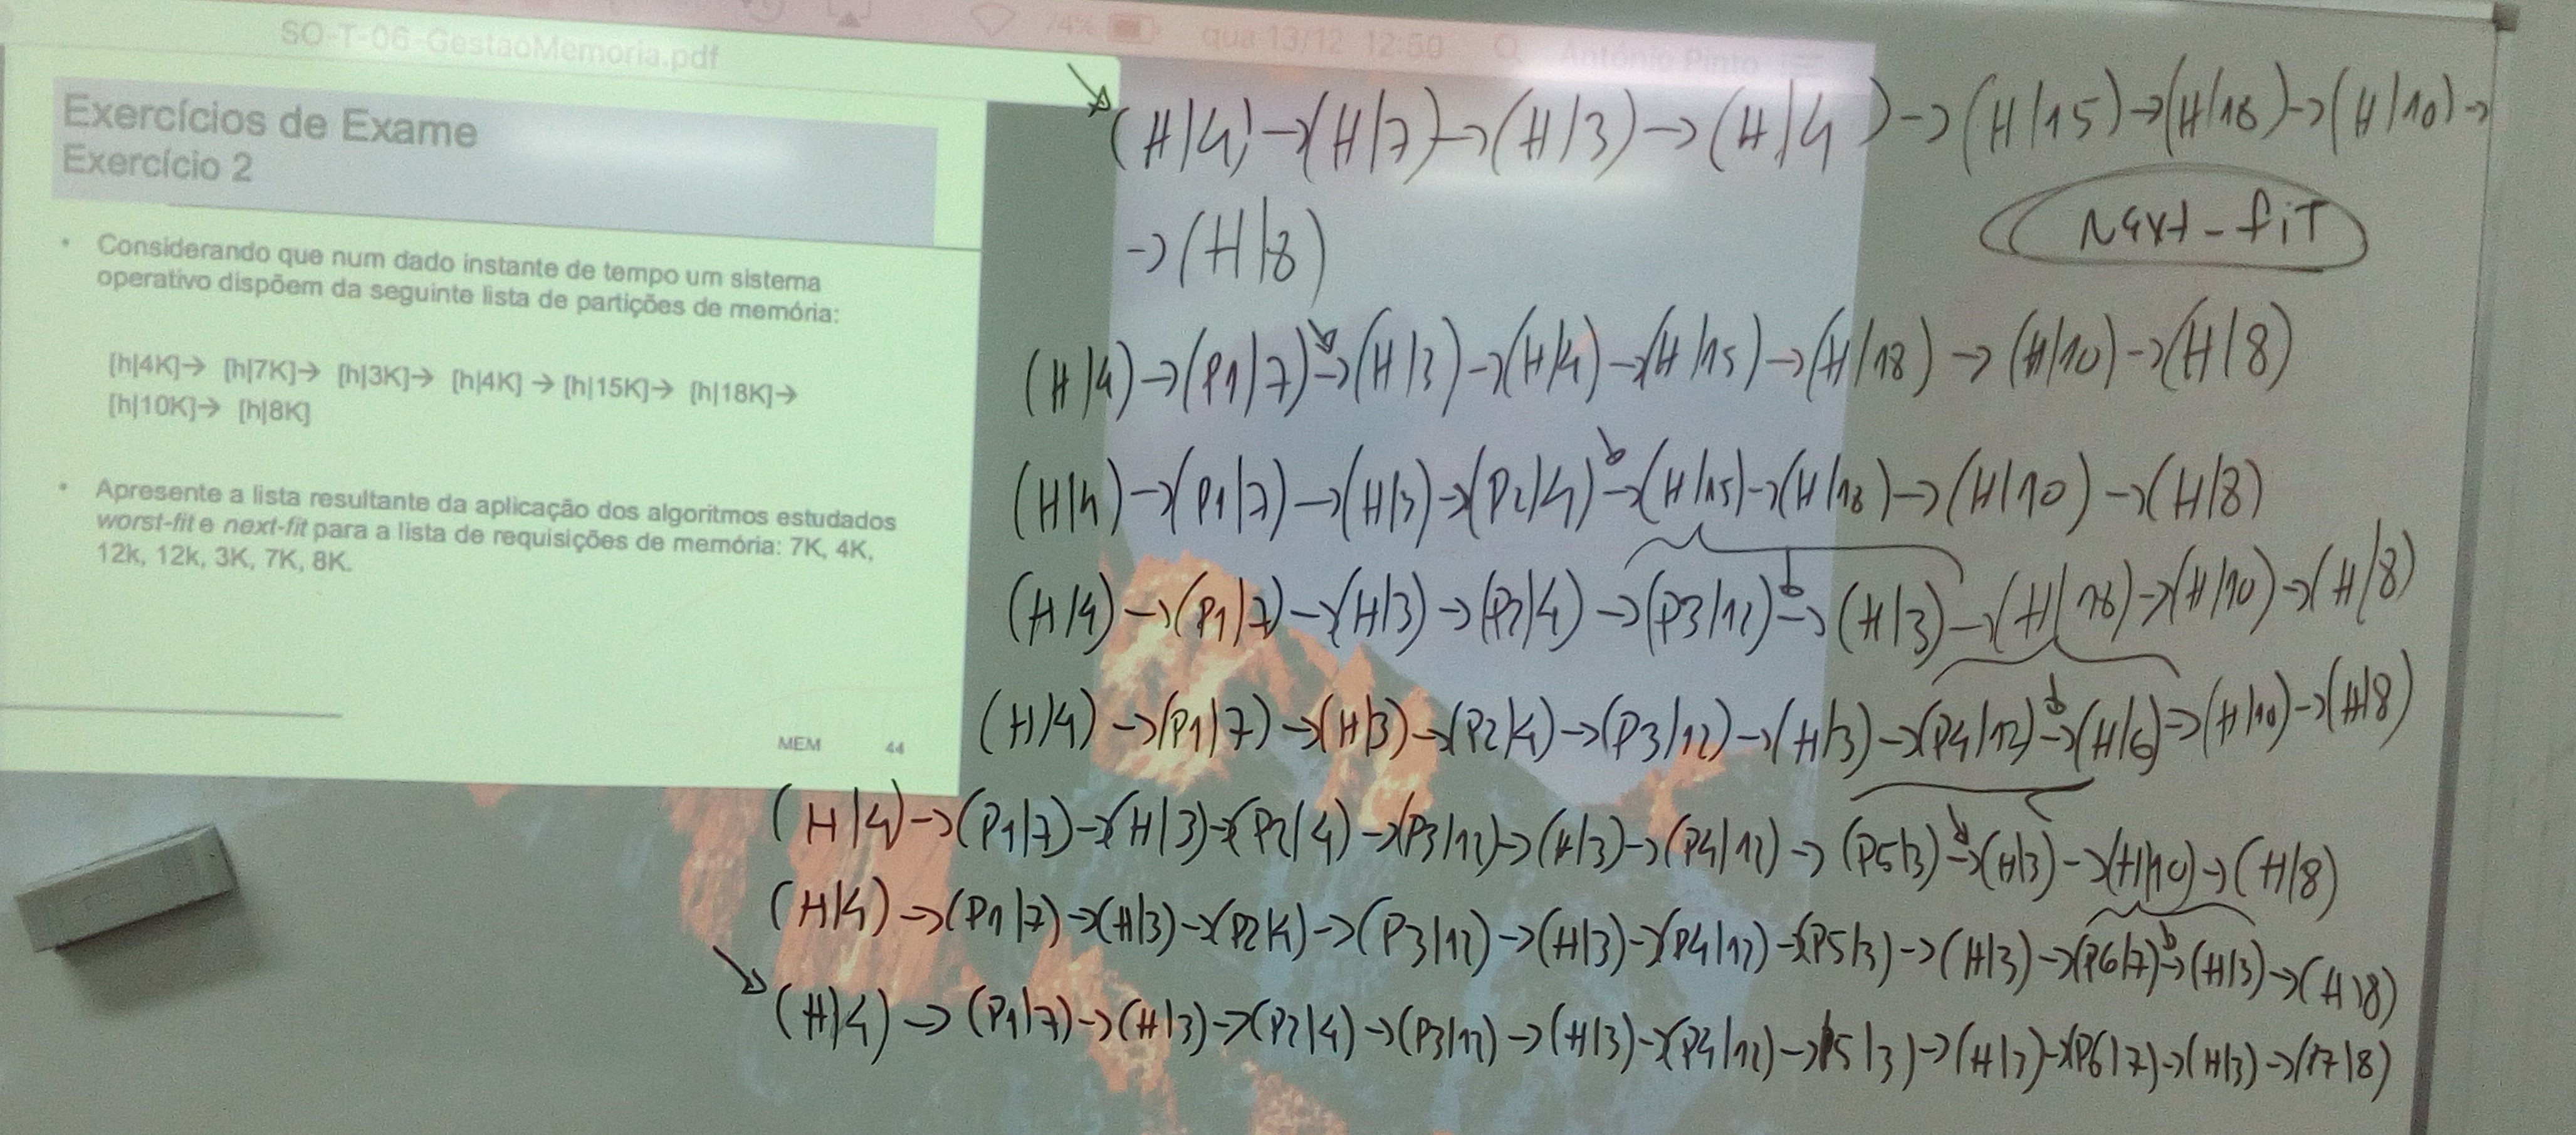 SO-T-06-GestaoMemoria.pdf
74% qua 13/12 12:50 António Pinto
Exercícios de Exame
Exercício 2
• Considerando que num dado instante de tempo um sistema
operativo dispõem da seguinte lista de partições de memória:
[h|4K]→ [h|7K]→ [h|3K]→ [h|4K] → [h|15K]→ [h|18K]→
[h|10K]→ [h|8K]
• Apresente a lista resultante da aplicação dos algoritmos estudados
worst-fit e next-fit para a lista de requisições de memória: 7K, 4K,
12k, 12k, 3K, 7K, 8K.
MEM 44
(H|4)→(H|7)→(H|3)→(H|4)→(H|15)→(H|18)→(H|10)→
→(H|8)
Next-fit
(H|4)→(P1|7)→(H|3)→(H|4)→(H|15)→(H|18)→(H|10)→(H|8)
(H|4)→(P1|7)→(H|3)→(P2|4)→(H|15)→(H|18)→(H|10)→(H|8)
(H|4)→(P1|7)→(H|3)→(P2|4)→(P3|12)→(H|3)→(H|18)→(H|10)→(H|8)
(H|4)→(P1|7)→(H|3)→(P2|4)→(P3|12)→(H|3)→(P4|12)→(H|6)→(H|10)→(H|8)
(H|4)→(P1|7)→(H|3)→(P2|4)→(P3|12)→(H|3)→(P4|12)→(P5|3)→(H|3)→(H|10)→(H|8)
(H|4)→(P1|7)→(H|3)→(P2|4)→(P3|12)→(H|3)→(P4|12)→(P5|3)→(H|3)→(P6|7)→(H|3)→(H|8)
(H|4)→(P1|7)→(H|3)→(P2|4)→(P3|12)→(H|3)→(P4|12)→(P5|3)→(H|3)→(P6|7)→(H|3)→(P7|8)